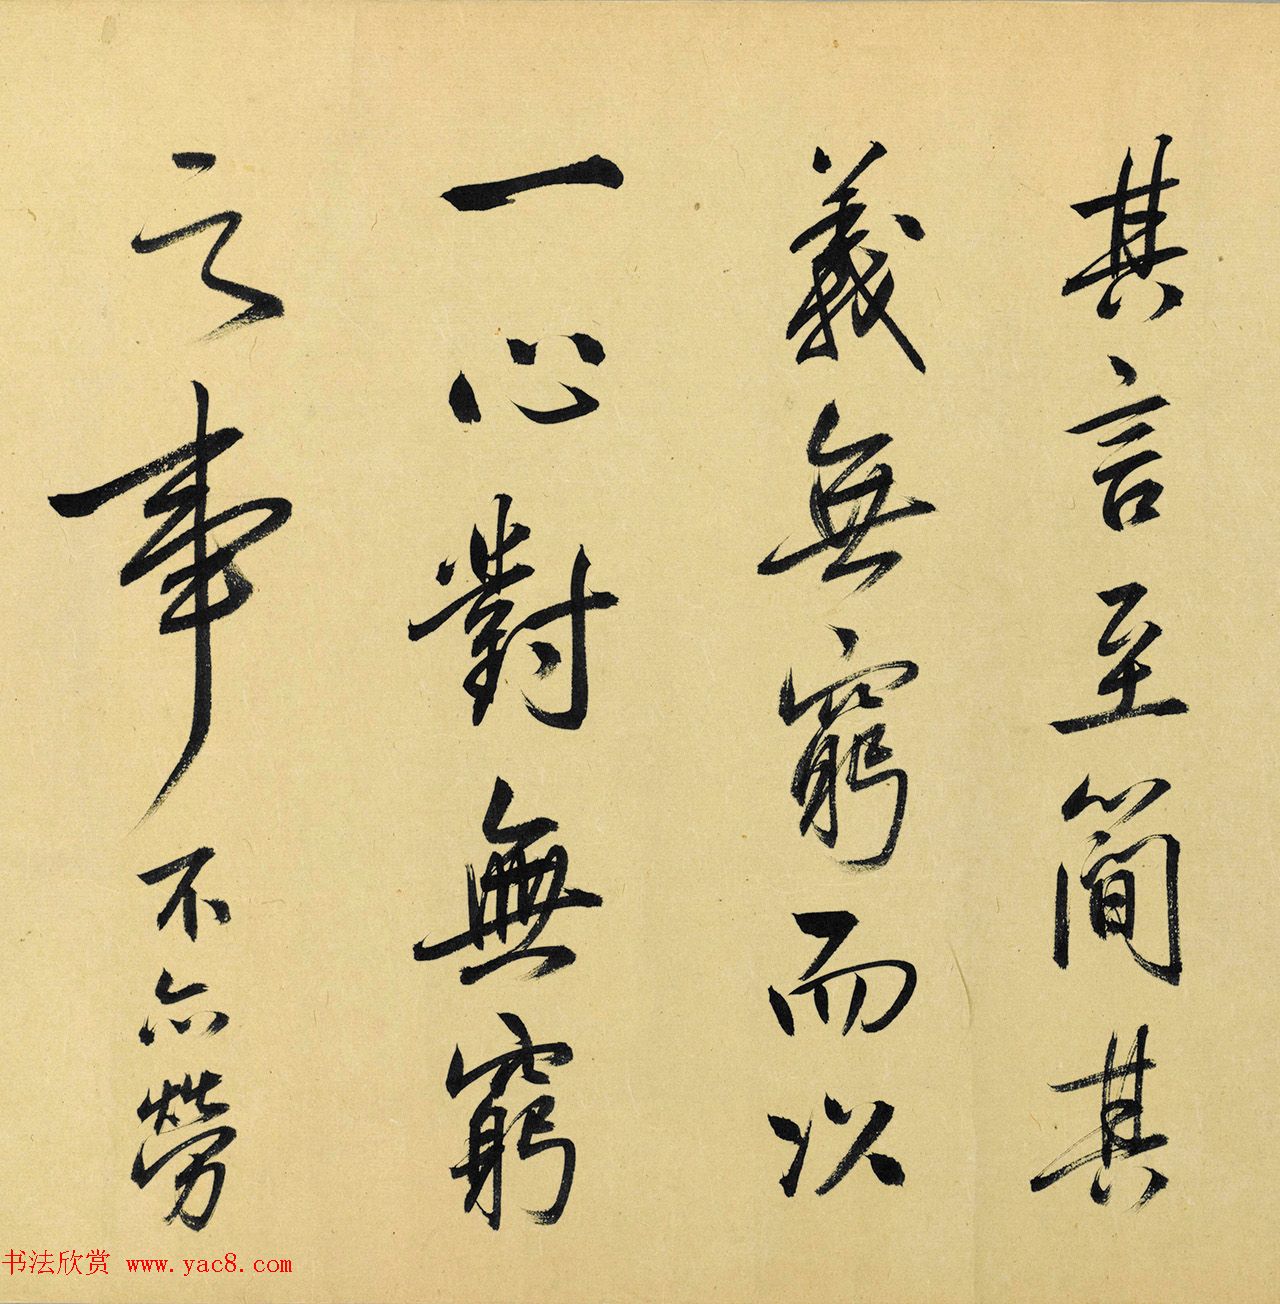 其言至簡其
義無窮而以
一心對無窮
之事不亦勞
书法欣赏 www.yac8.com